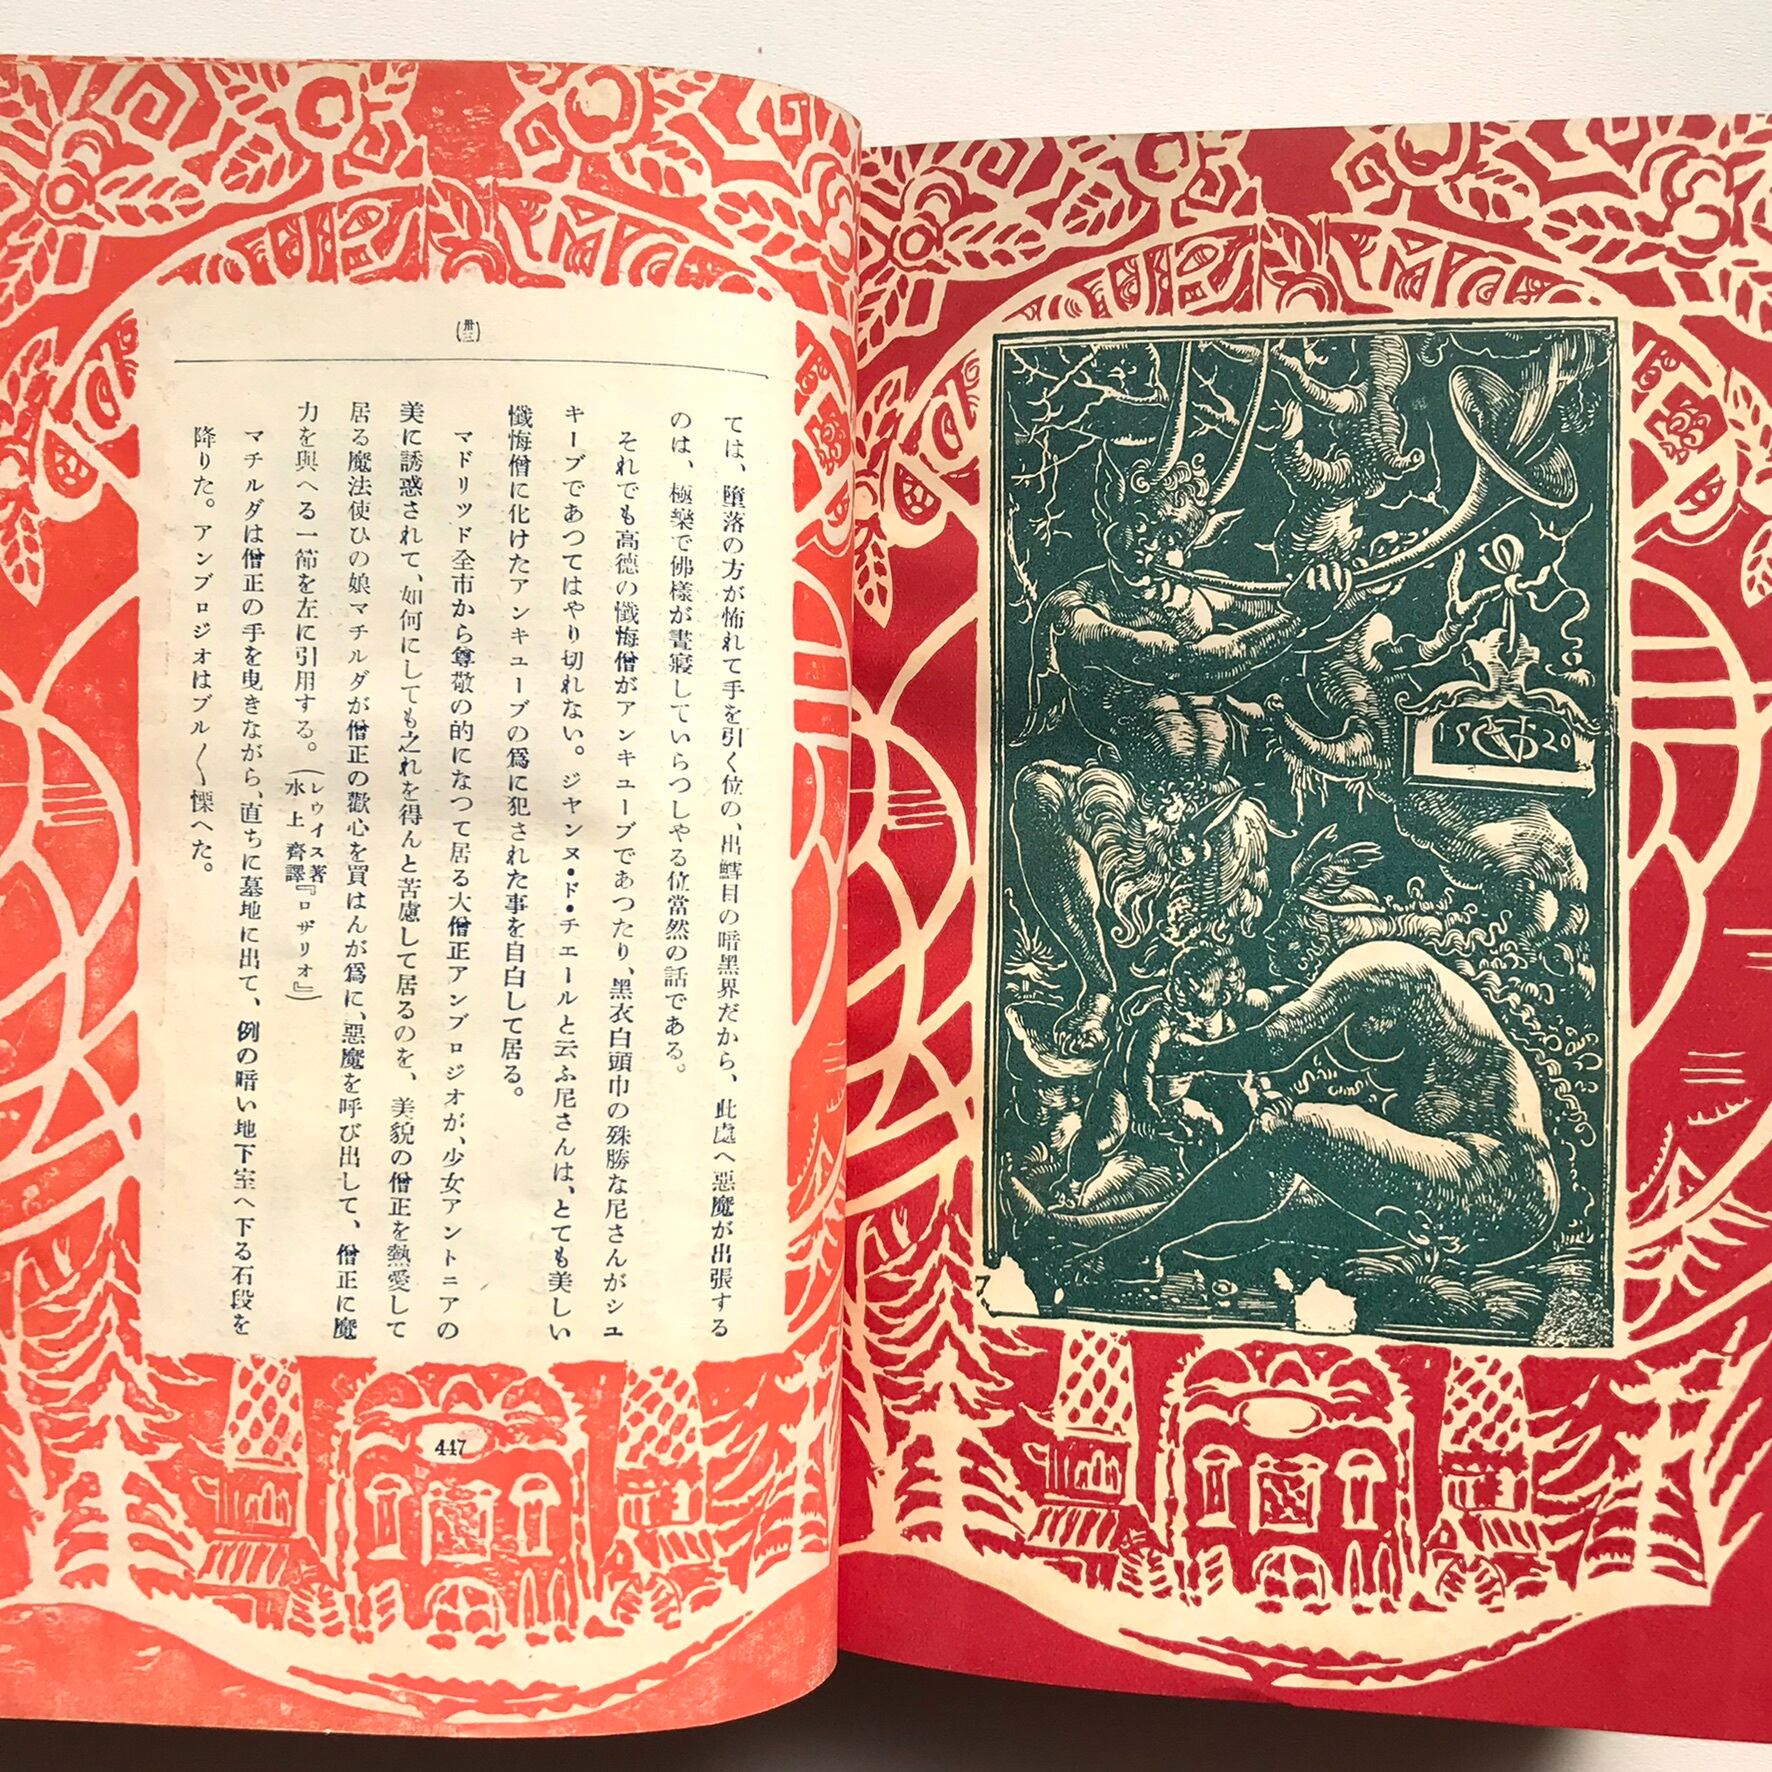 (卅三)
ては、墮落の方が怖れて手を引く位の、出鱈目の暗黑界だから、此處へ惡魔が出張する
のは、極樂で佛樣が晝寢していらつしやる位當然の話である。
それでも高德の懺悔僧がアンキユーブであつたり、黑衣白頭巾の殊勝な尼さんがシユ
キーブであつてはやり切れない。ジヤンヌ・ド・チエールと云ふ尼さんは、とても美しい
懺悔僧に化けたアンキユーブの爲に犯された事を自白して居る。
マドリツド全市から尊敬の的になつて居る大僧正アンブロジオが、少女アントニアの
美に誘惑されて、如何にしても之れを得んと苦慮して居るのを、美貌の僧正を熱愛して
居る魔法使ひの娘マチルダが僧正の歡心を買はんが爲に、惡魔を呼び出して、僧正に魔
力を與へる一節を左に引用する。(レウイス著水上齊譯『ロザリオ』)
マチルダは僧正の手を曳きながら、直ちに墓地に出て、例の暗い地下室へ下る石段を
降りた。アンブロジオはブル〱慄へた。
447
15 20